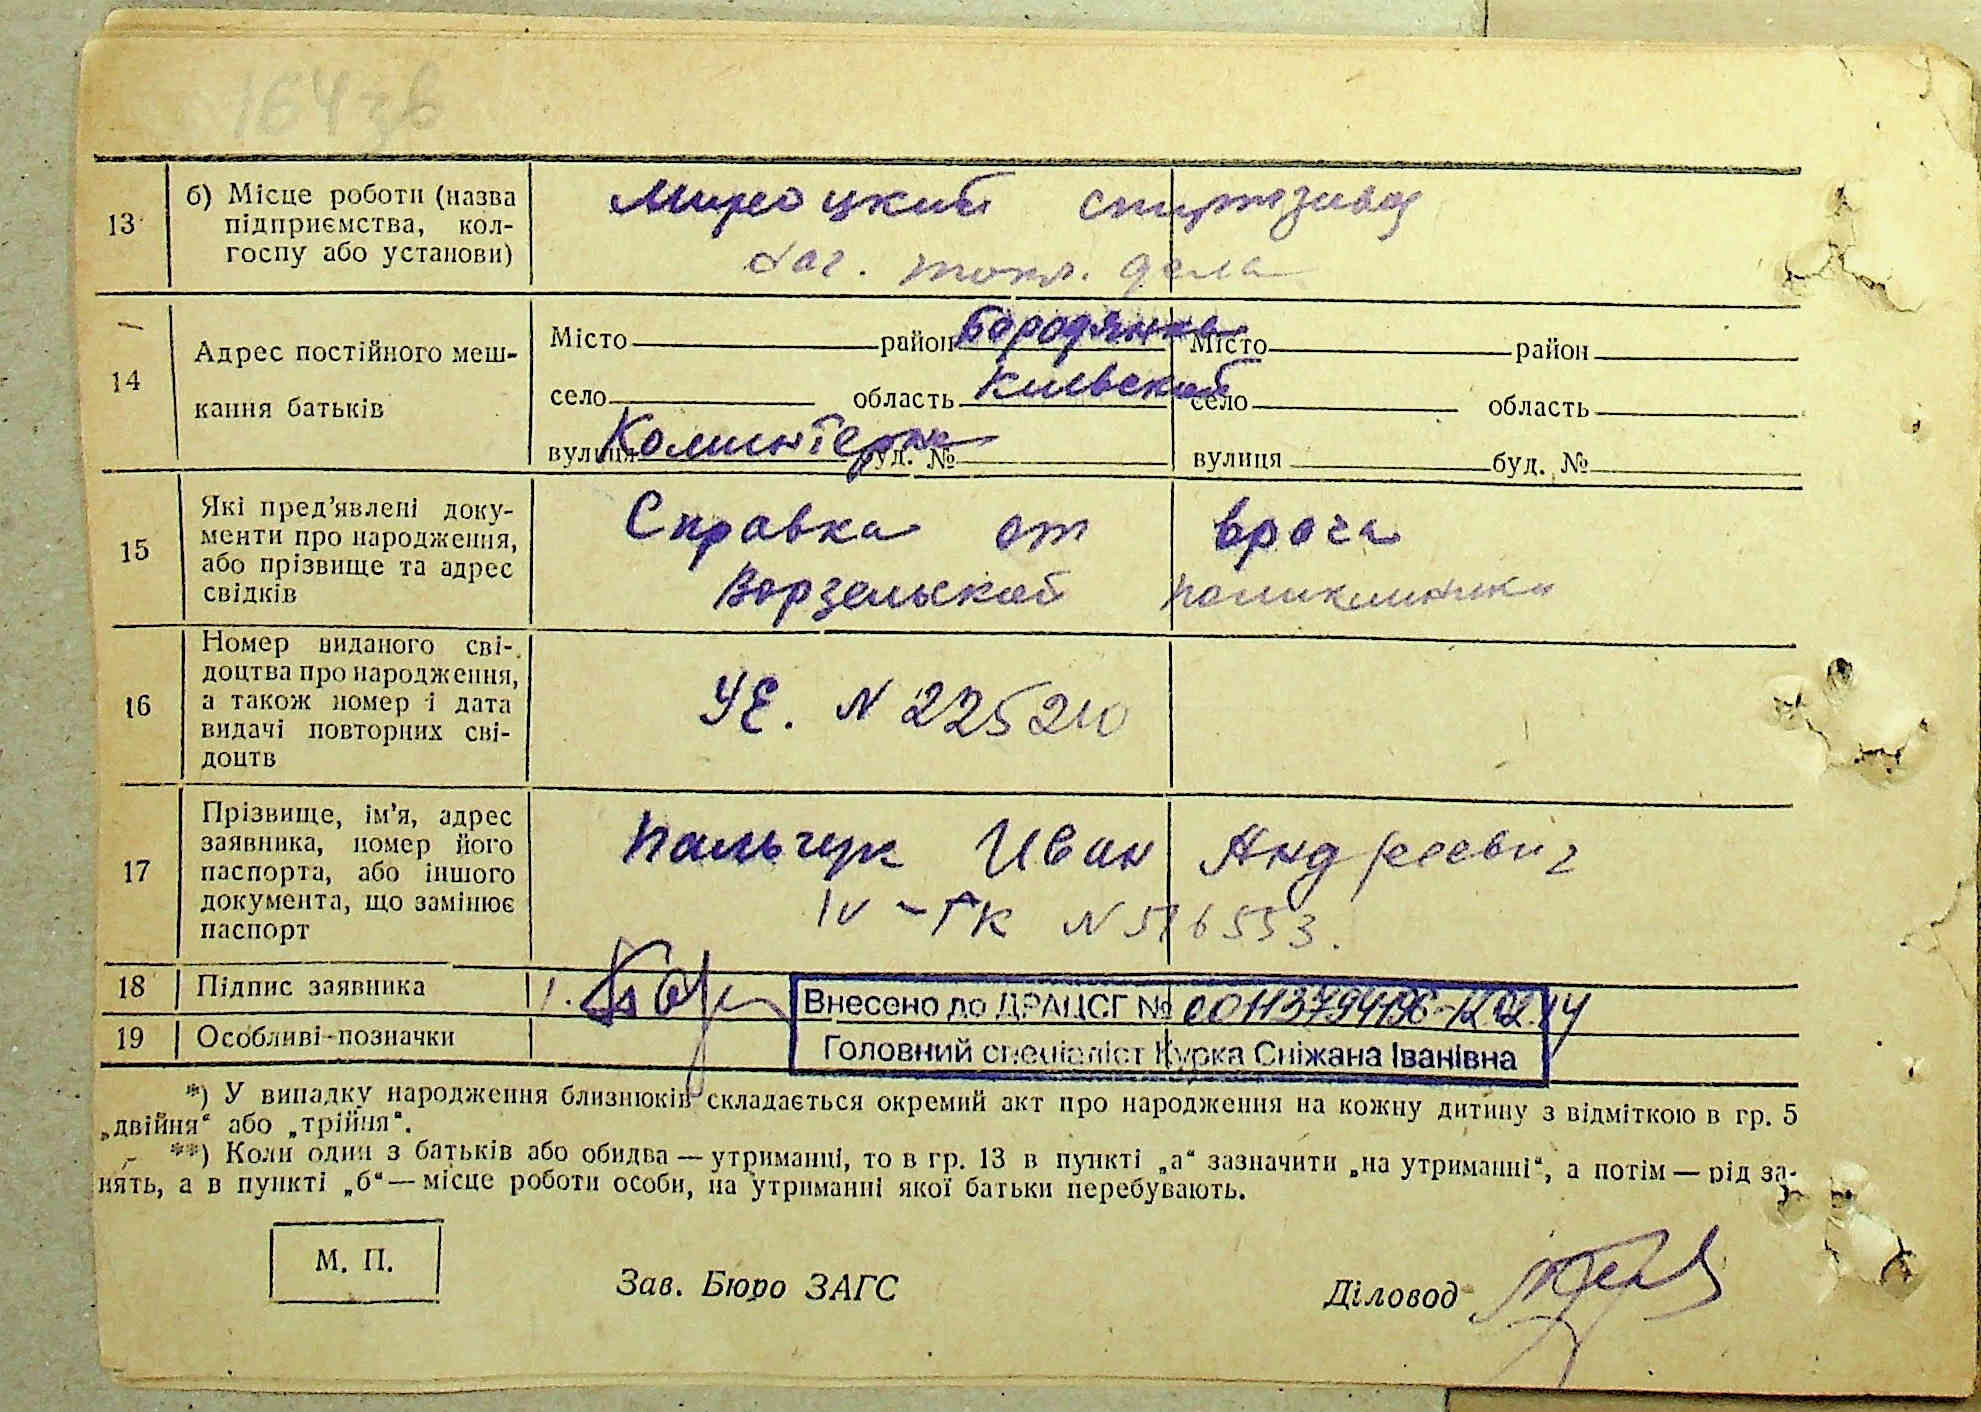 164зв
13 б) Місце роботи (назва підприємства, колгоспу або установи) Мироцкий спиртзавод
топл. дела
14 Адрес постійного мешкання батьків
Місто район Бородянка Місто район
село область Киевской село область
вулиця Коминтерна буд. № вулиця буд. №
15 Які пред'явлені документи про народження, або прізвище та адрес свідків Справка от врача
Ворзельской поликлиники
16 Номер виданого свідоцтва про народження, а також номер і дата видачі повторних свідоцтв УЕ. N 225210
17 Прізвище, ім'я, адрес заявника, номер його паспорта, або іншого документа, що замінює паспорт Пальчук Иван Андреевич
IV-ГК N 516553.
18 Підпис заявника 1.
Внесено до ДРАЦСГ №
19 Особливі позначки
Головний спеціаліст Курка Сніжана Іванівна
*) У випадку народження близнюків складається окремий акт про народження на кожну дитину з відміткою в гр. 5
„двійня“ або „трійня“.
**) Коли один з батьків або обидва — утриманці, то в гр. 13 в пункті „а“ зазначити „на утриманні“, а потім — рід за-
нять, а в пункті „б“ — місце роботи особи, на утриманні якої батьки перебувають.
М. П.
Зав. Бюро ЗАГС Діловод